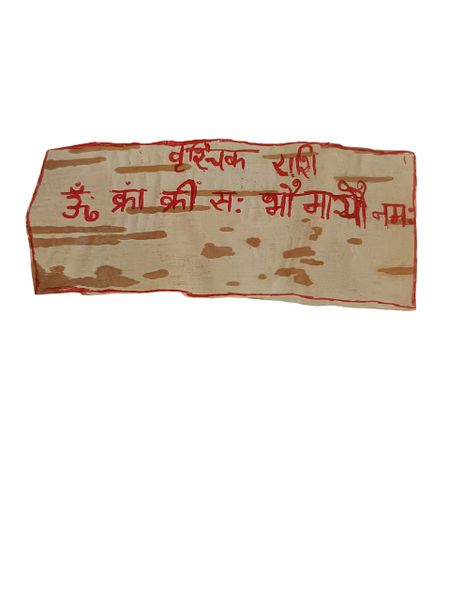 वृश्चिक राशि
ॐ क्रां क्रीं सः भौमायौ नमः